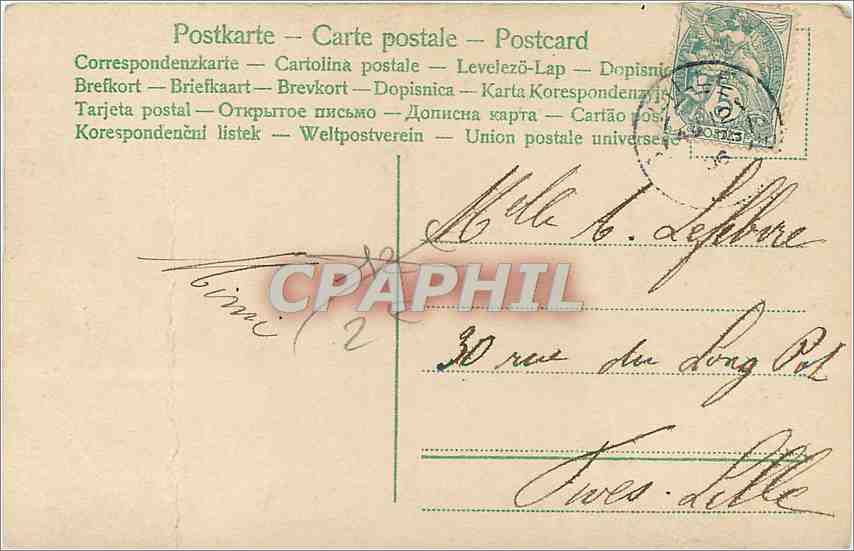 Postkarte – Carte postale – Postcard
Correspondenzkarte – Cartolina postale – Levelező-Lap – Dopisnic
Brefkort – Briefkaart – Brevkort – Dopisnica – Karta Korespondenzyjs
Tarjeta postal – Открытое письмо – Дописна карта – Cartão pos
Korespondenční lístek – Weltpostverein – Union postale universelle
Melle A. Lefebvre
Mimi
CPAPHIL
30 rue du Long Pot
Fives-Lille